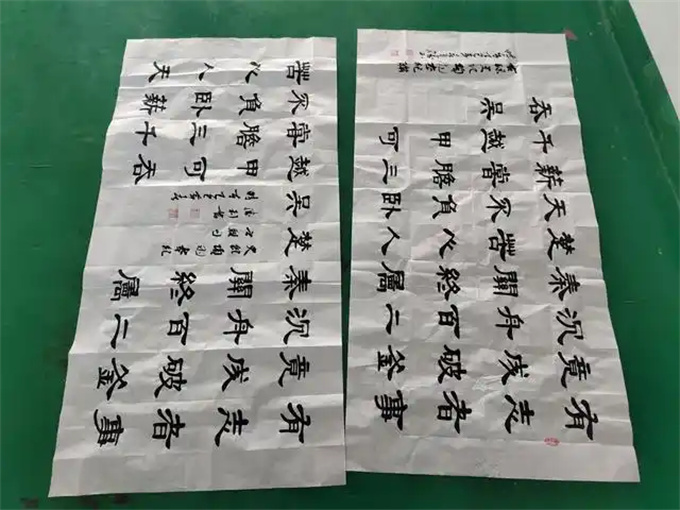 有志者事
竟成破釜
沉舟百二
秦關終屬
楚
苦心人天
不負臥薪
嘗膽三千
越甲可吞
吳
有志者事
竟成破釜
沉舟百二
秦關終屬
楚苦心人
天不負臥
薪嘗膽三
千越甲可
吞吳